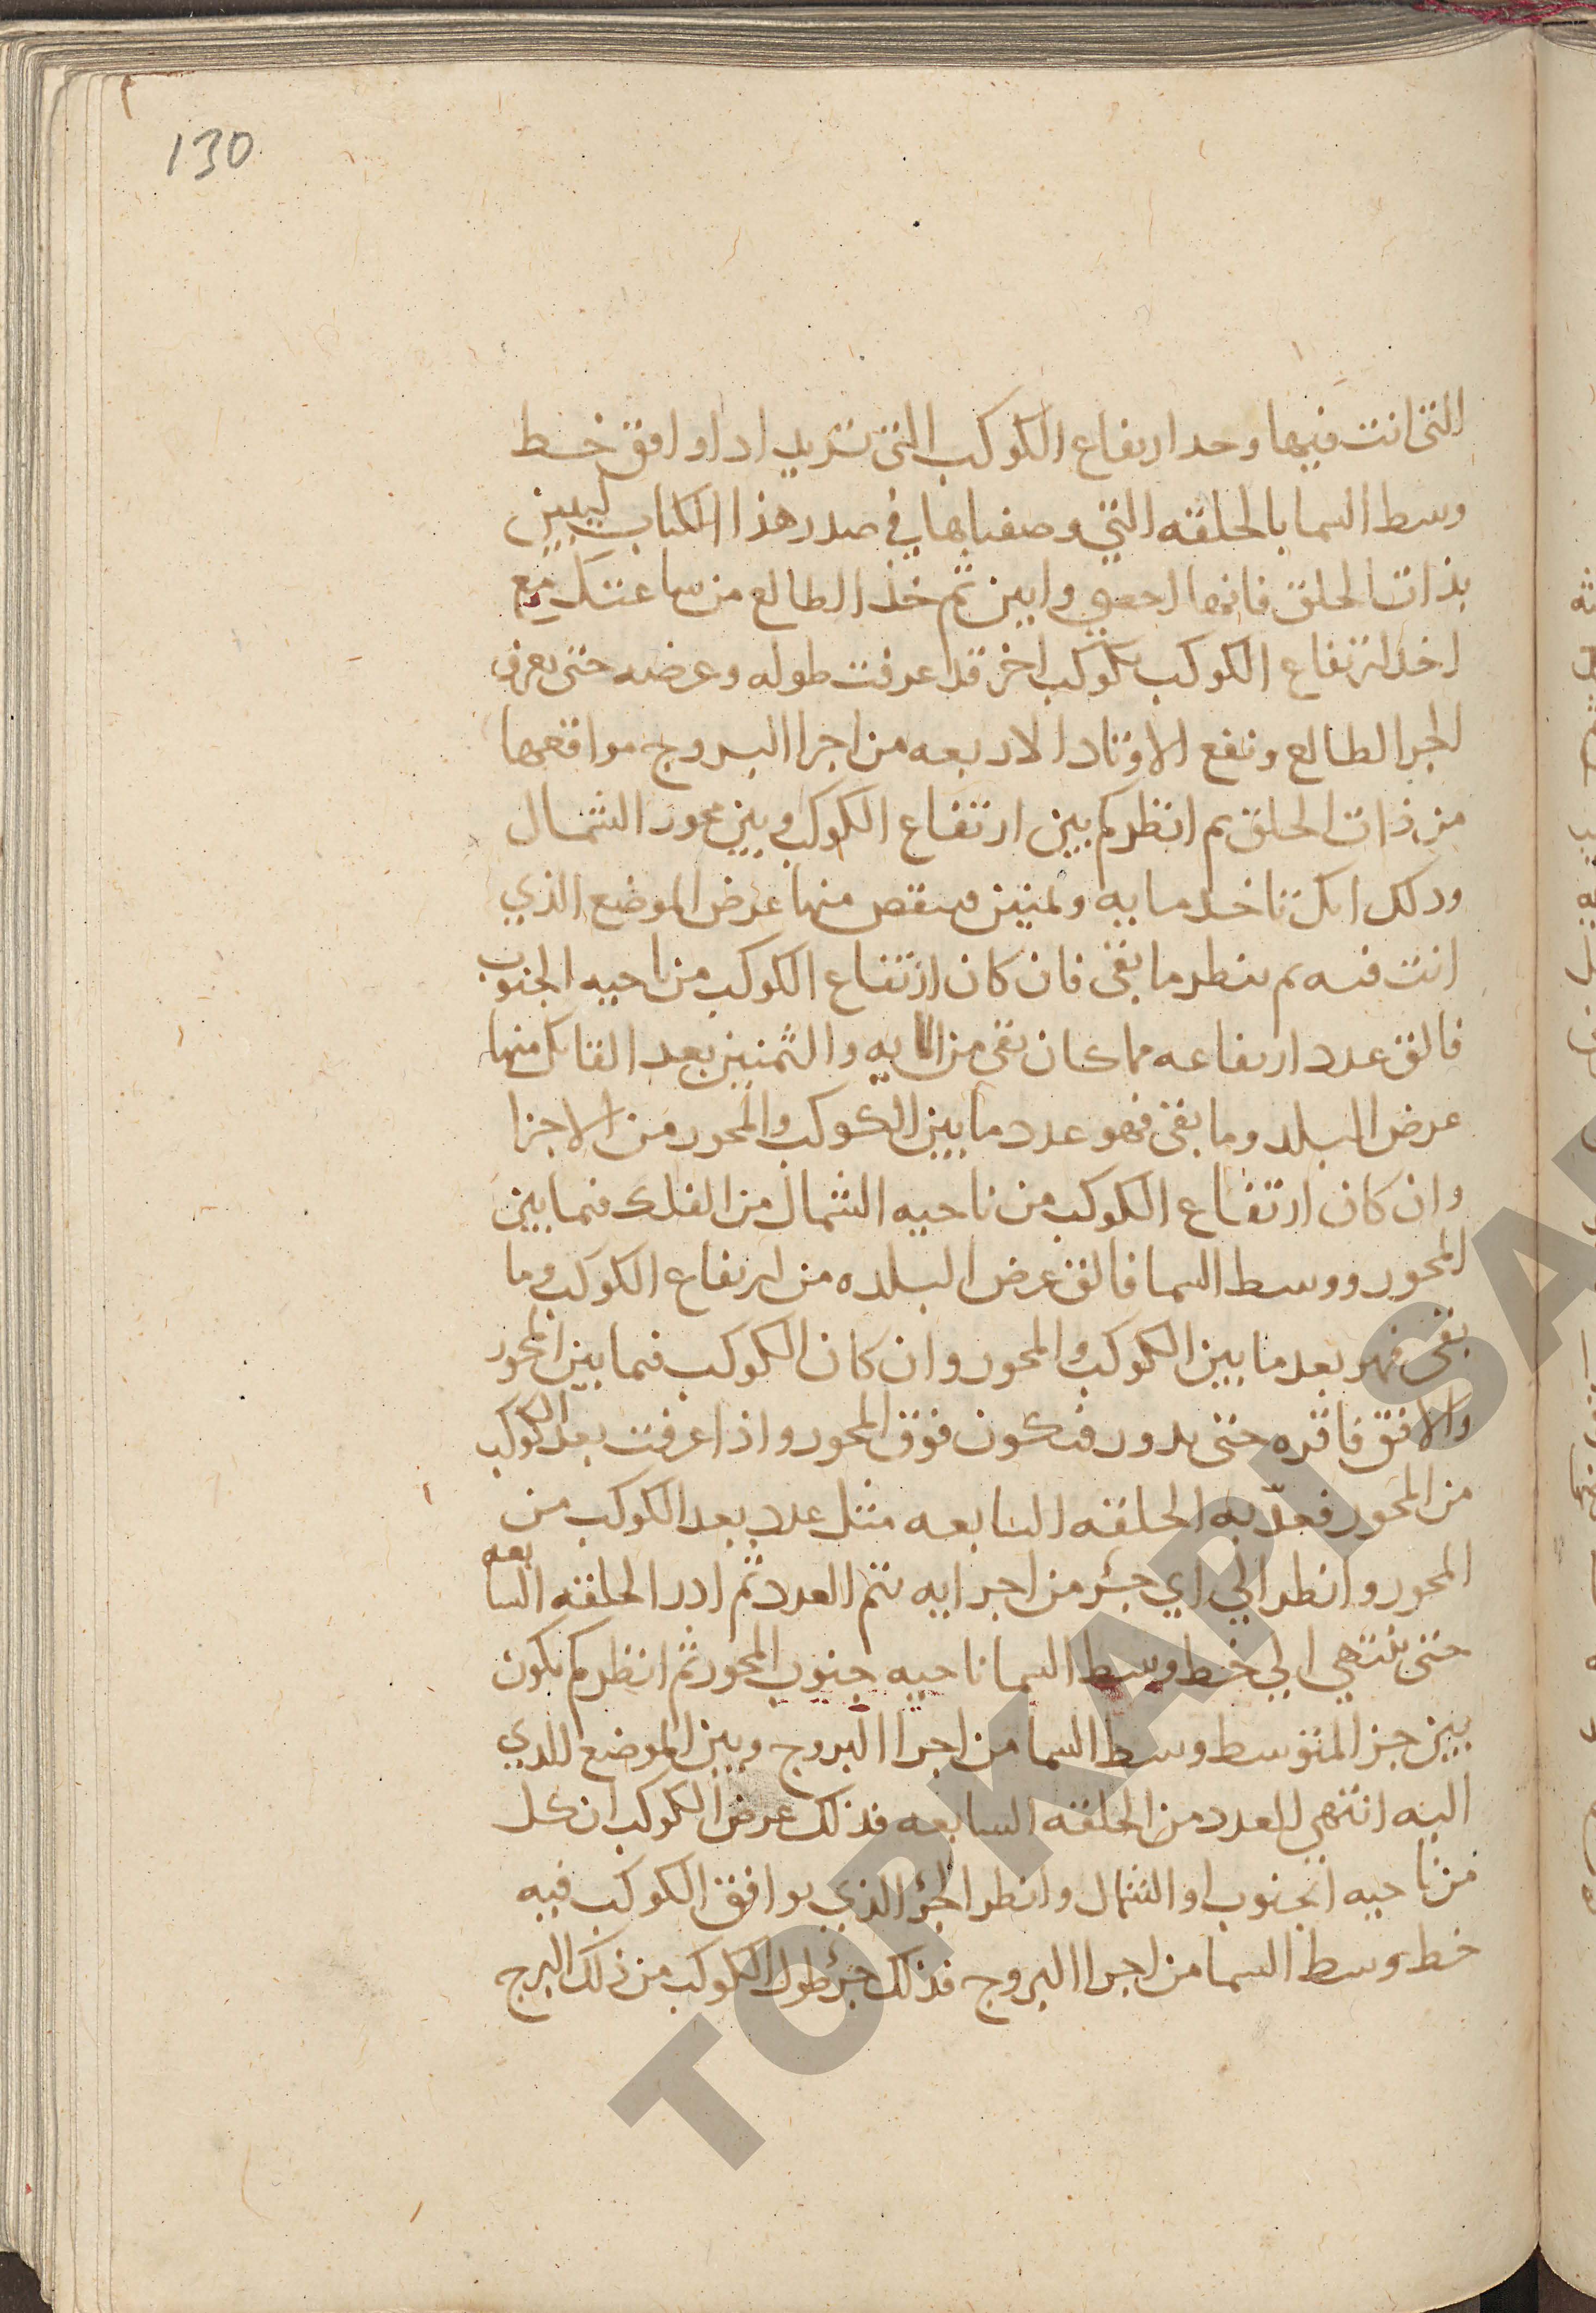 130
التى انت فيها وحد ارىفاع الكوكب التى تريد اداوافق خط
وسط السما بالحلقه التي وصفناها في صدر هذا الكتاب ليس
بذات الحلق فانها اصوب وابين ثم خذ الطالع من ساعتك مع
اخد ارتفاع الكوكب بكوكب اخر قد عرفت طوله وعرضه حتى ىعرف
الجزا لطالع وتقع الاوتاد الاربعه من اجزا البروج مواقعها
من ذات الحلق ىم انظر كم بين ارتفاع الكوكب وبين محور الشمال
ودلك انك تاخد مايه وثمنين فىنقص منها عرض الموضع الذي
انت فىه ىم ىنطر ما بقى فان كان ارتفاع الكوكب من ناحيه الجنوب
فالق عدد ارىفاعه مما كان بقى من المايه والثمنين بعد القائك منها
عرض البلد وما بقى فهو عدد ما بين الكوكب والمحور من الاجزا
وان كان ارتفاع الكوكب من ناحيه الشمال من الفلك فىما بين
المحور ووسط السما فالق عرض البلده من ارىفاع الكوكب وما
بقى فهو بعد ما بين الكوكب والمحور وان كان الكوكب فىما بين المحور
والافق فاقره حتى ىدور فىكون فوق المحور واذا عرفت بعد الكوكب
من المحور فعدّ به الحلقه السابعه مثل عدد بعد الكوكب من
المحور وانطر الي اي جزء من اجزايه ىتم العدد ثم ادر الحلقه السابعه
حتى ىنتهي الي خط وسط السما ناحيه جنوب المحور ثم انظر كم ىكون
بين جز المتوسط وسط السما من اجزا البروج وبين الموضع الدي
اليه انتهي العدد من الحلقه السابعه فذلك عرض الكوكب ان كان
من ناحيه الجنوب او الشمال وانطر الجزء الذي ىوافق الكوكب فيه
خط وسط السما من اجزا البروج فذلك جزء طول الكوكب من ذلك البرج
TOPKAPI SA